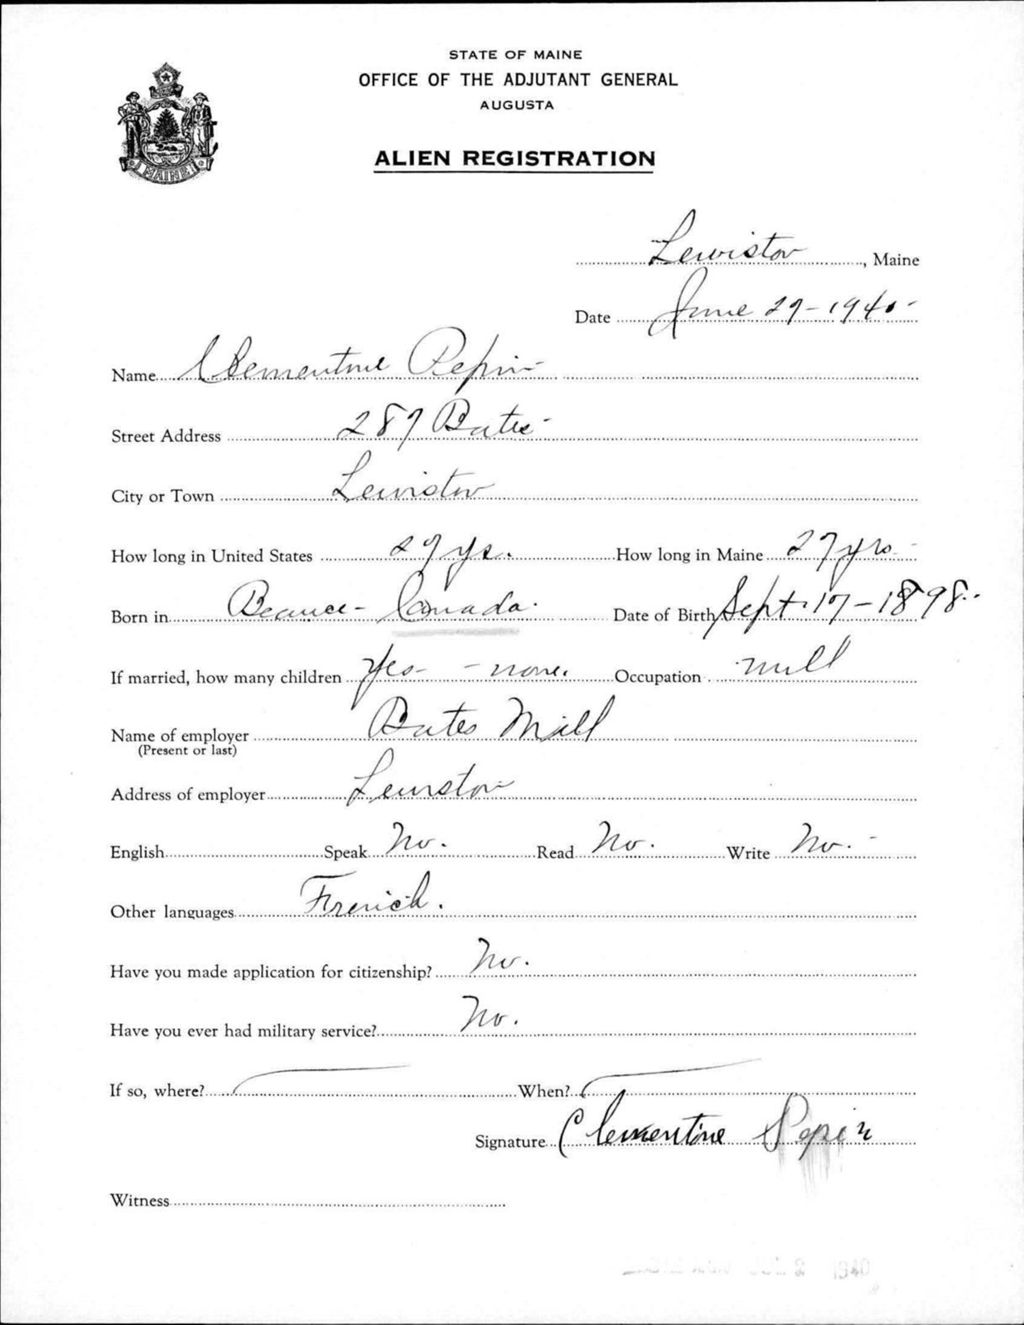 STATE OF MAINE
OFFICE OF THE ADJUTANT GENERAL
AUGUSTA
ALIEN REGISTRATION
MAINE
Lewiston, Maine
Date June 29-1940-
Name Clementine Pepin-
Street Address 287 Bates-
City or Town Lewiston
How long in United States 27 ys. How long in Maine 27 yrs-
Born in Beauce- Canada. Date of Birth Sept. 17-1898-
If married, how many children Yes- -none. Occupation mill
Name of employer Bates Mill
(Present or last)
Address of employer Lewiston
English Speak No. Read No. Write No.-
Other languages French.
Have you made application for citizenship? No.
Have you ever had military service? No.
If so, where? When?
Signature Clementine Pepin
Witness